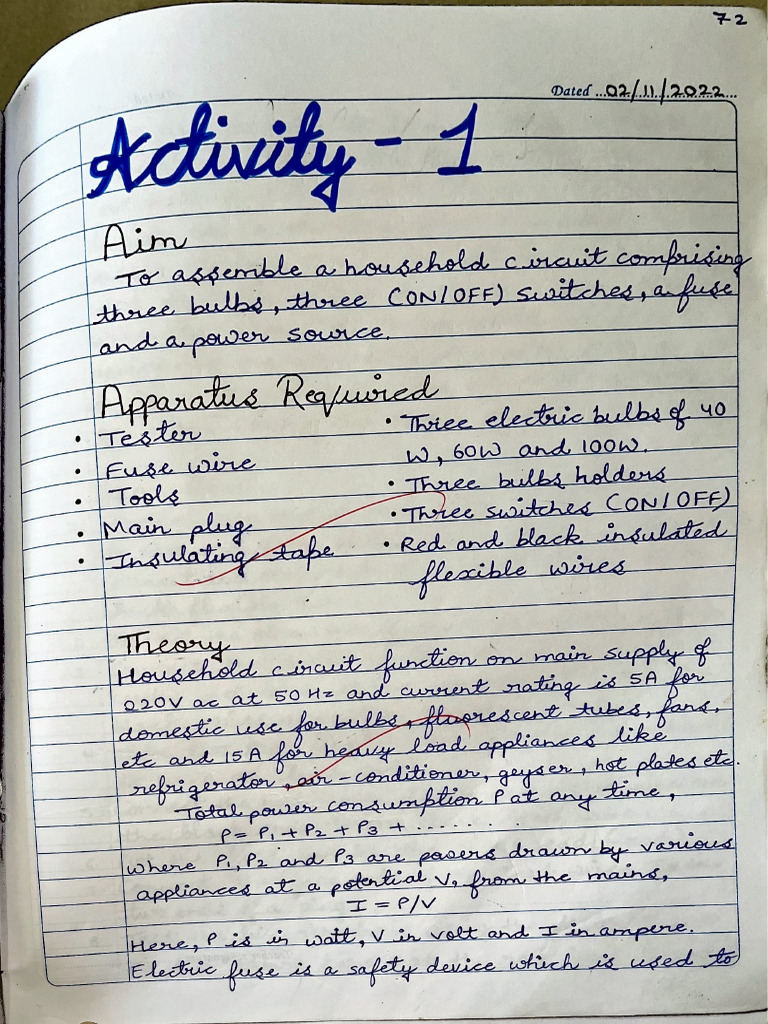 72
Dated ...02/11/2022...
Activity - 1
Aim
To assemble a household circuit comprising
three bulbs, three (ON/OFF) switches, a fuse
and a power source.
Apparatus Required
• Tester
• Fuse wire
• Tools
• Main plug
• Insulating tape
• Three electric bulbs of 40
W, 60W and 100W.
• Three bulbs holders
• Three switches (ON/OFF)
• Red and black insulated
flexible wires
Theory
Household circuit function on main supply of
220V ac at 50 Hz and current rating is 5A for
domestic use for bulbs, fluorescent tubes, fans,
etc and 15A for heavy load appliances like
refrigerator, air-conditioner, geyser, hot plates etc.
Total power consumption P at any time,
P = P₁ + P₂ + P₃ + ........
where P₁, P₂ and P₃ are powers drawn by various
appliances at a potential V, from the mains,
I = P/V
Here, P is in watt, V in volt and I in ampere.
Electric fuse is a safety device which is used to